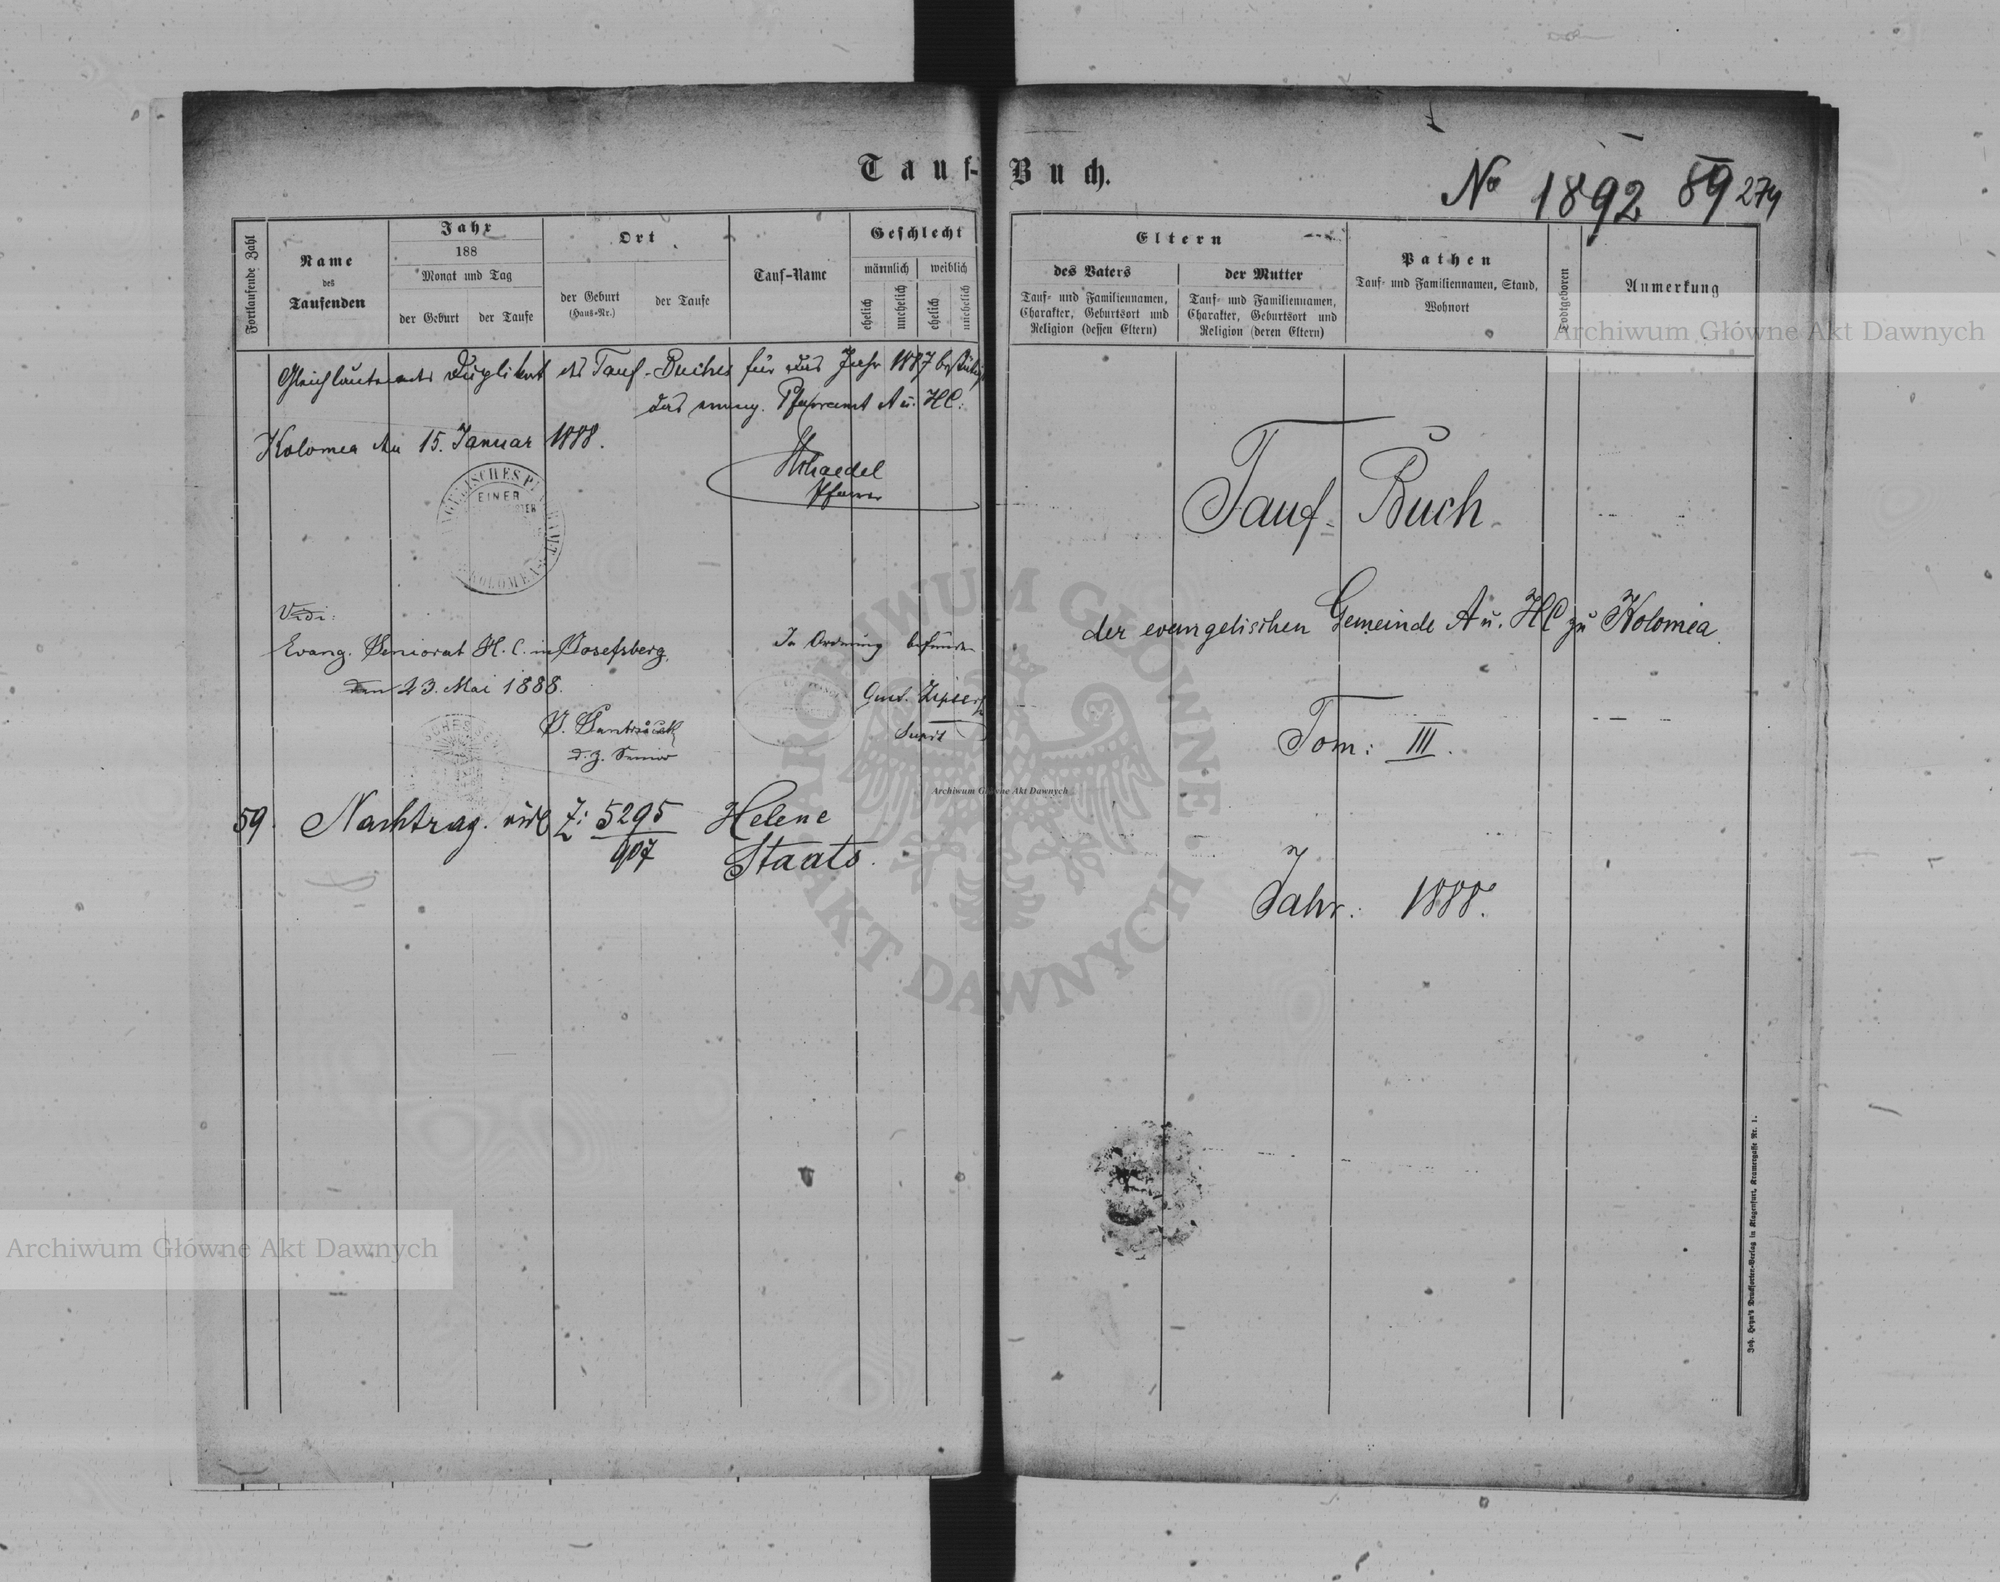 Tauf-Buch.
No 1892 89 274
Fortlaufende Zahl
Name
des
Taufenden
Jahr
188
Monat und Tag
der Geburt
der Taufe
Ort
der Geburt
(Haus-Nr.)
der Taufe
Tauf-Name
Geschlecht
männlich
weiblich
ehelich
unehelich
ehelich
unehelich
Eltern
des Vaters
Tauf- und Familiennamen,
Charakter, Geburtsort und
Religion (dessen Eltern)
der Mutter
Tauf- und Familiennamen,
Charakter, Geburtsort und
Religion (deren Eltern)
Pathen
Tauf- und Familiennamen, Stand,
Wohnort
Todtgeboren
Anmerkung
Gleichlautendes Duplikat des Tauf-Buches für das Jahr 1887 bestätigt
das evang. Pfarramt A u. HC:
Kolomea den 15. Januar 1888.
Pfarrer
EINER
KOLOMEA
Vidi:
Evang. Seniorat H. C. in Josefsberg
den 23. Mai 1888.
d. z. Senior
In Ordnung befunden
Supdt
59. Nachtrag. vide Z: 5295
907
Helene
Staats.
Tauf-Buch.
der evangelischen Gemeinde A u. HC zu Kolomea.
Tom: III.
Jahr: 1888.
Joh. Heyn's Drucksorten-Verlag in Klagenfurt, Kramergasse Nr. 1.
Archiwum Główne Akt Dawnych
Archiwum Główne Akt Dawnych
Archiwum Główne Akt Dawnych
ARCHIWUM GŁÓWNE · AKT DAWNYCH ·